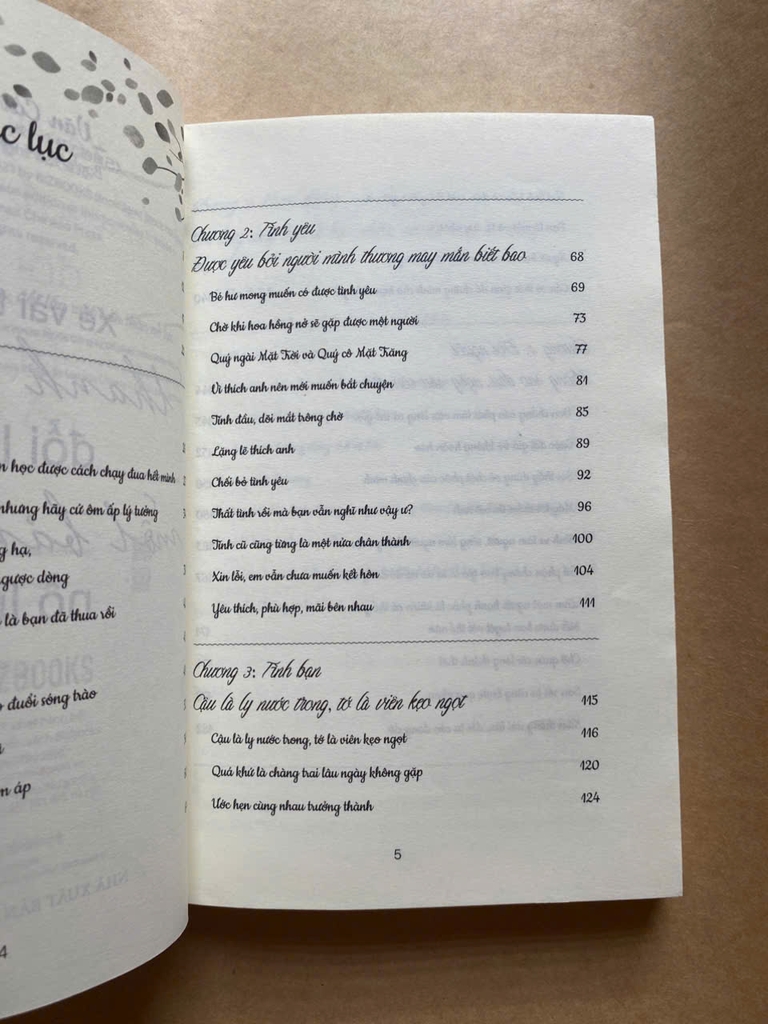 c lục
học được cách chạy đua hết mình
nhưng hãy cứ ôm ấp lý tưởng
g hạ,
gược dòng
là bạn đã thua rồi
đuổi sóng trào
m áp
4
Chương 2: Tình yêu
Được yêu bởi người mình thương may mắn biết bao 68
Bé hư mong muốn có được tình yêu 69
Chờ khi hoa hồng nở sẽ gặp được một người 73
Quý ngài Mặt Trời và Quý cô Mặt Trăng 77
Vì thích anh nên mới muốn bắt chuyện 81
Tình đầu, dõi mắt trông chờ 85
Lặng lẽ thích anh 89
Chối bỏ tình yêu 92
Thất tình rồi mà bạn vẫn nghĩ như vậy ư? 96
Tình cũ cũng từng là một nửa chân thành 100
Xin lỗi, em vẫn chưa muốn kết hôn 104
Yêu thích, phù hợp, mãi bên nhau 111
Chương 3: Tình bạn
Cậu là ly nước trong, tớ là viên kẹo ngọt 115
Cậu là ly nước trong, tớ là viên kẹo ngọt 116
Quá khứ là chàng trai lâu ngày không gặp 120
Ước hẹn cùng nhau trưởng thành 124
5